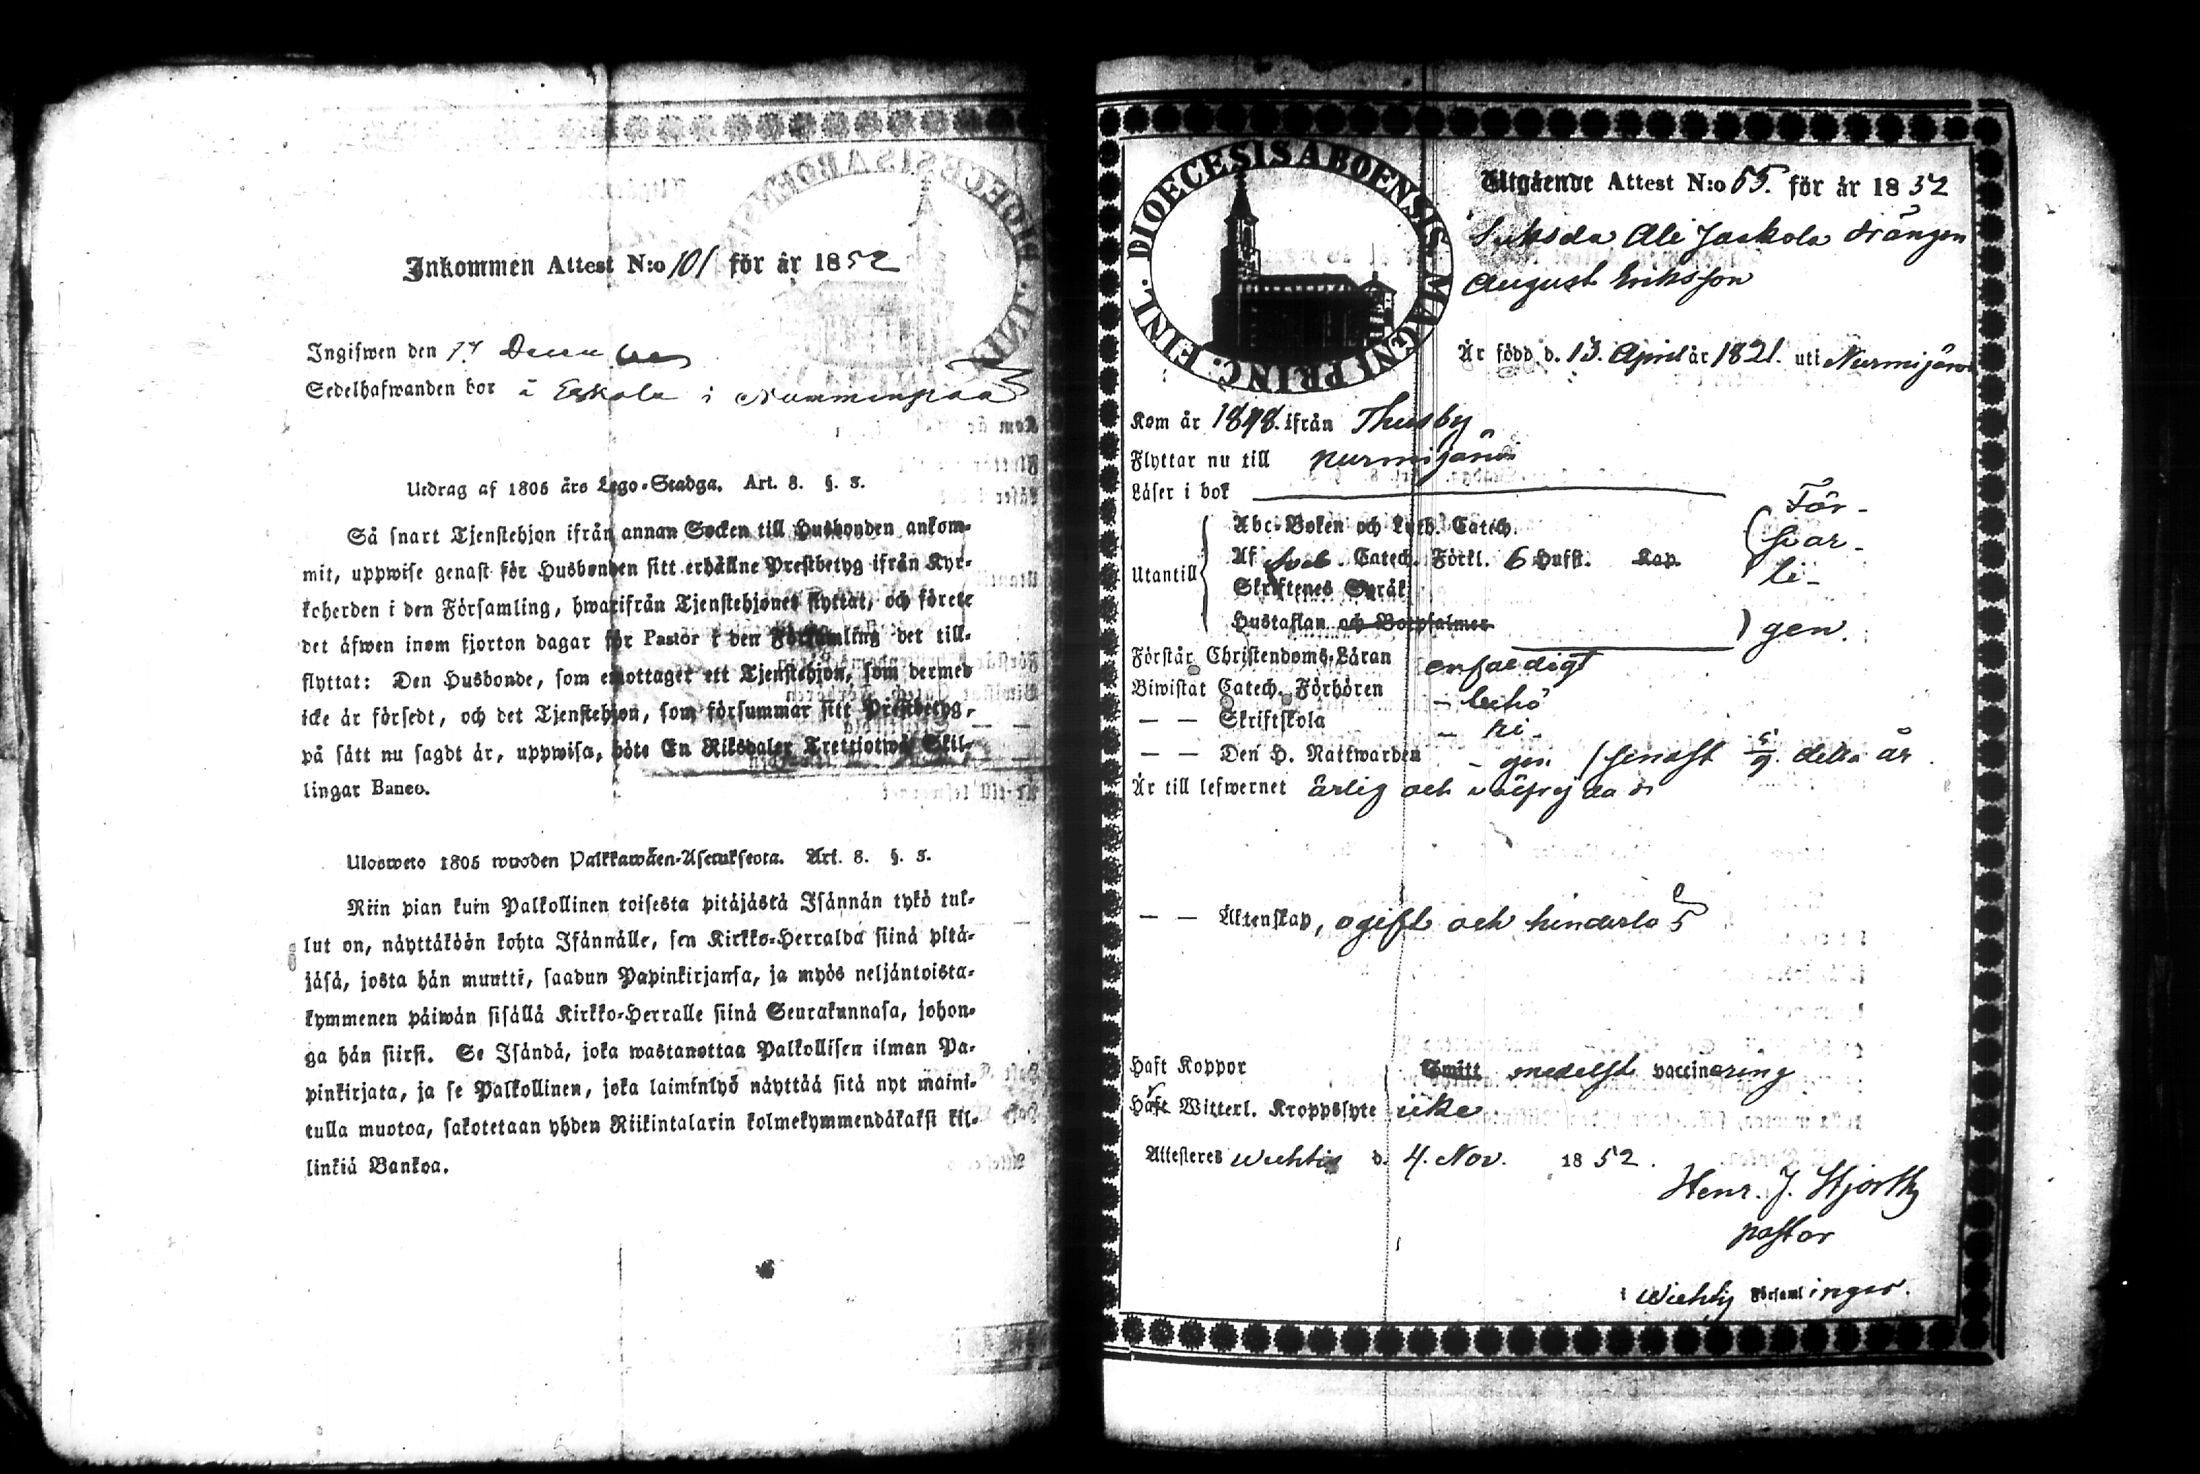 Inkommen Attest N:o 101 för år 1852
Ingifwen den 17 December
Sedelhafwanden bor i Eskola i Nummenpää
Utdrag af 1805 års Lego-Stadga. Art. 8. §. 3.
Så snart Tjenstehjon ifrån annan Socken till Husbonden ankom-
mit, uppwise genast för Husbonden sitt erhållne Prestbetyg ifrån Kyr-
koherden i den Församling, hwarifrån Tjenstehjonet flyttat, och förete
det äfwen inom fjorton dagar för Pastor i den Församling det till-
flyttat: Den Husbonde, som emottaget ett Tjenstehjon, som dermed
icke är försedt, och det Tjenstehjon, som försummar sitt Prestbetyg,
på sätt nu sagdt är, uppwisa, böte En Riksdaler Trettiotwå Skil-
lingar Banco.
Ulosweto 1805 wuoden Palkkawäen-Asetuksesta. Art. 8. §. 3.
Niin pian kuin Palkollinen toisesta pitäjästä Isännän tykö tul-
lut on, näyttäköön kohta Isännälle, sen Kirkko-Herralda siinä pitä-
jäsä, josta hän muutti, saadun Papinkirjansa, ja myös neljäntoista-
kymmenen päiwän sisällä Kirkko-Herralle siinä Seurakunnasa, johon-
ga hän siirsi. Se Isändä, joka wastanottaa Palkollisen ilman Pa-
pinkirjata, ja se Palkollinen, joka laiminlyö näyttää sitä nyt maini-
tulla muotoa, sakotetaan yhden Riikintalarin kolmekymmendäkaksi kil-
linkiä Bankoa.
DIOECESIS ABOENSIS MAGNI PRINC. FINL.
Utgående Attest N:o 55. för år 1852
Suksela Ali Jaakola drängen
August Eriksson
Är född d. 13. April år 1821. uti Nurmijärvi
Kom år 1848. ifrån Thusby
Flyttar nu till Nurmijärvi
Läser i bok
Utantill
Abc-Boken och Luth. Catech.
Af Sveb. Catech. Förkl. 6 Hufst. Kap.
Skriftenes Språk
Hustaflan och Botpsalmer
För-
svar-
li-
gen.
Förstår Christendoms-Läran enfaldigt
Biwistat Catech. Förhören - behö
— — Skriftskola - ri -
— — Den H. Nattwarden - gen / senast 5/9. detta år.
Är till lefwernet ärlig och välfrejdad
— — Äktenskap, ogift och hinderlös
Haft Koppor Smitt medelst vaccinering
Haft Witterl. Kroppslyte icke
Attesteres Wichtis d. 4. Nov. 1852.
Henr. J. Hjorth
pastor
i Wichtis Församlingar.